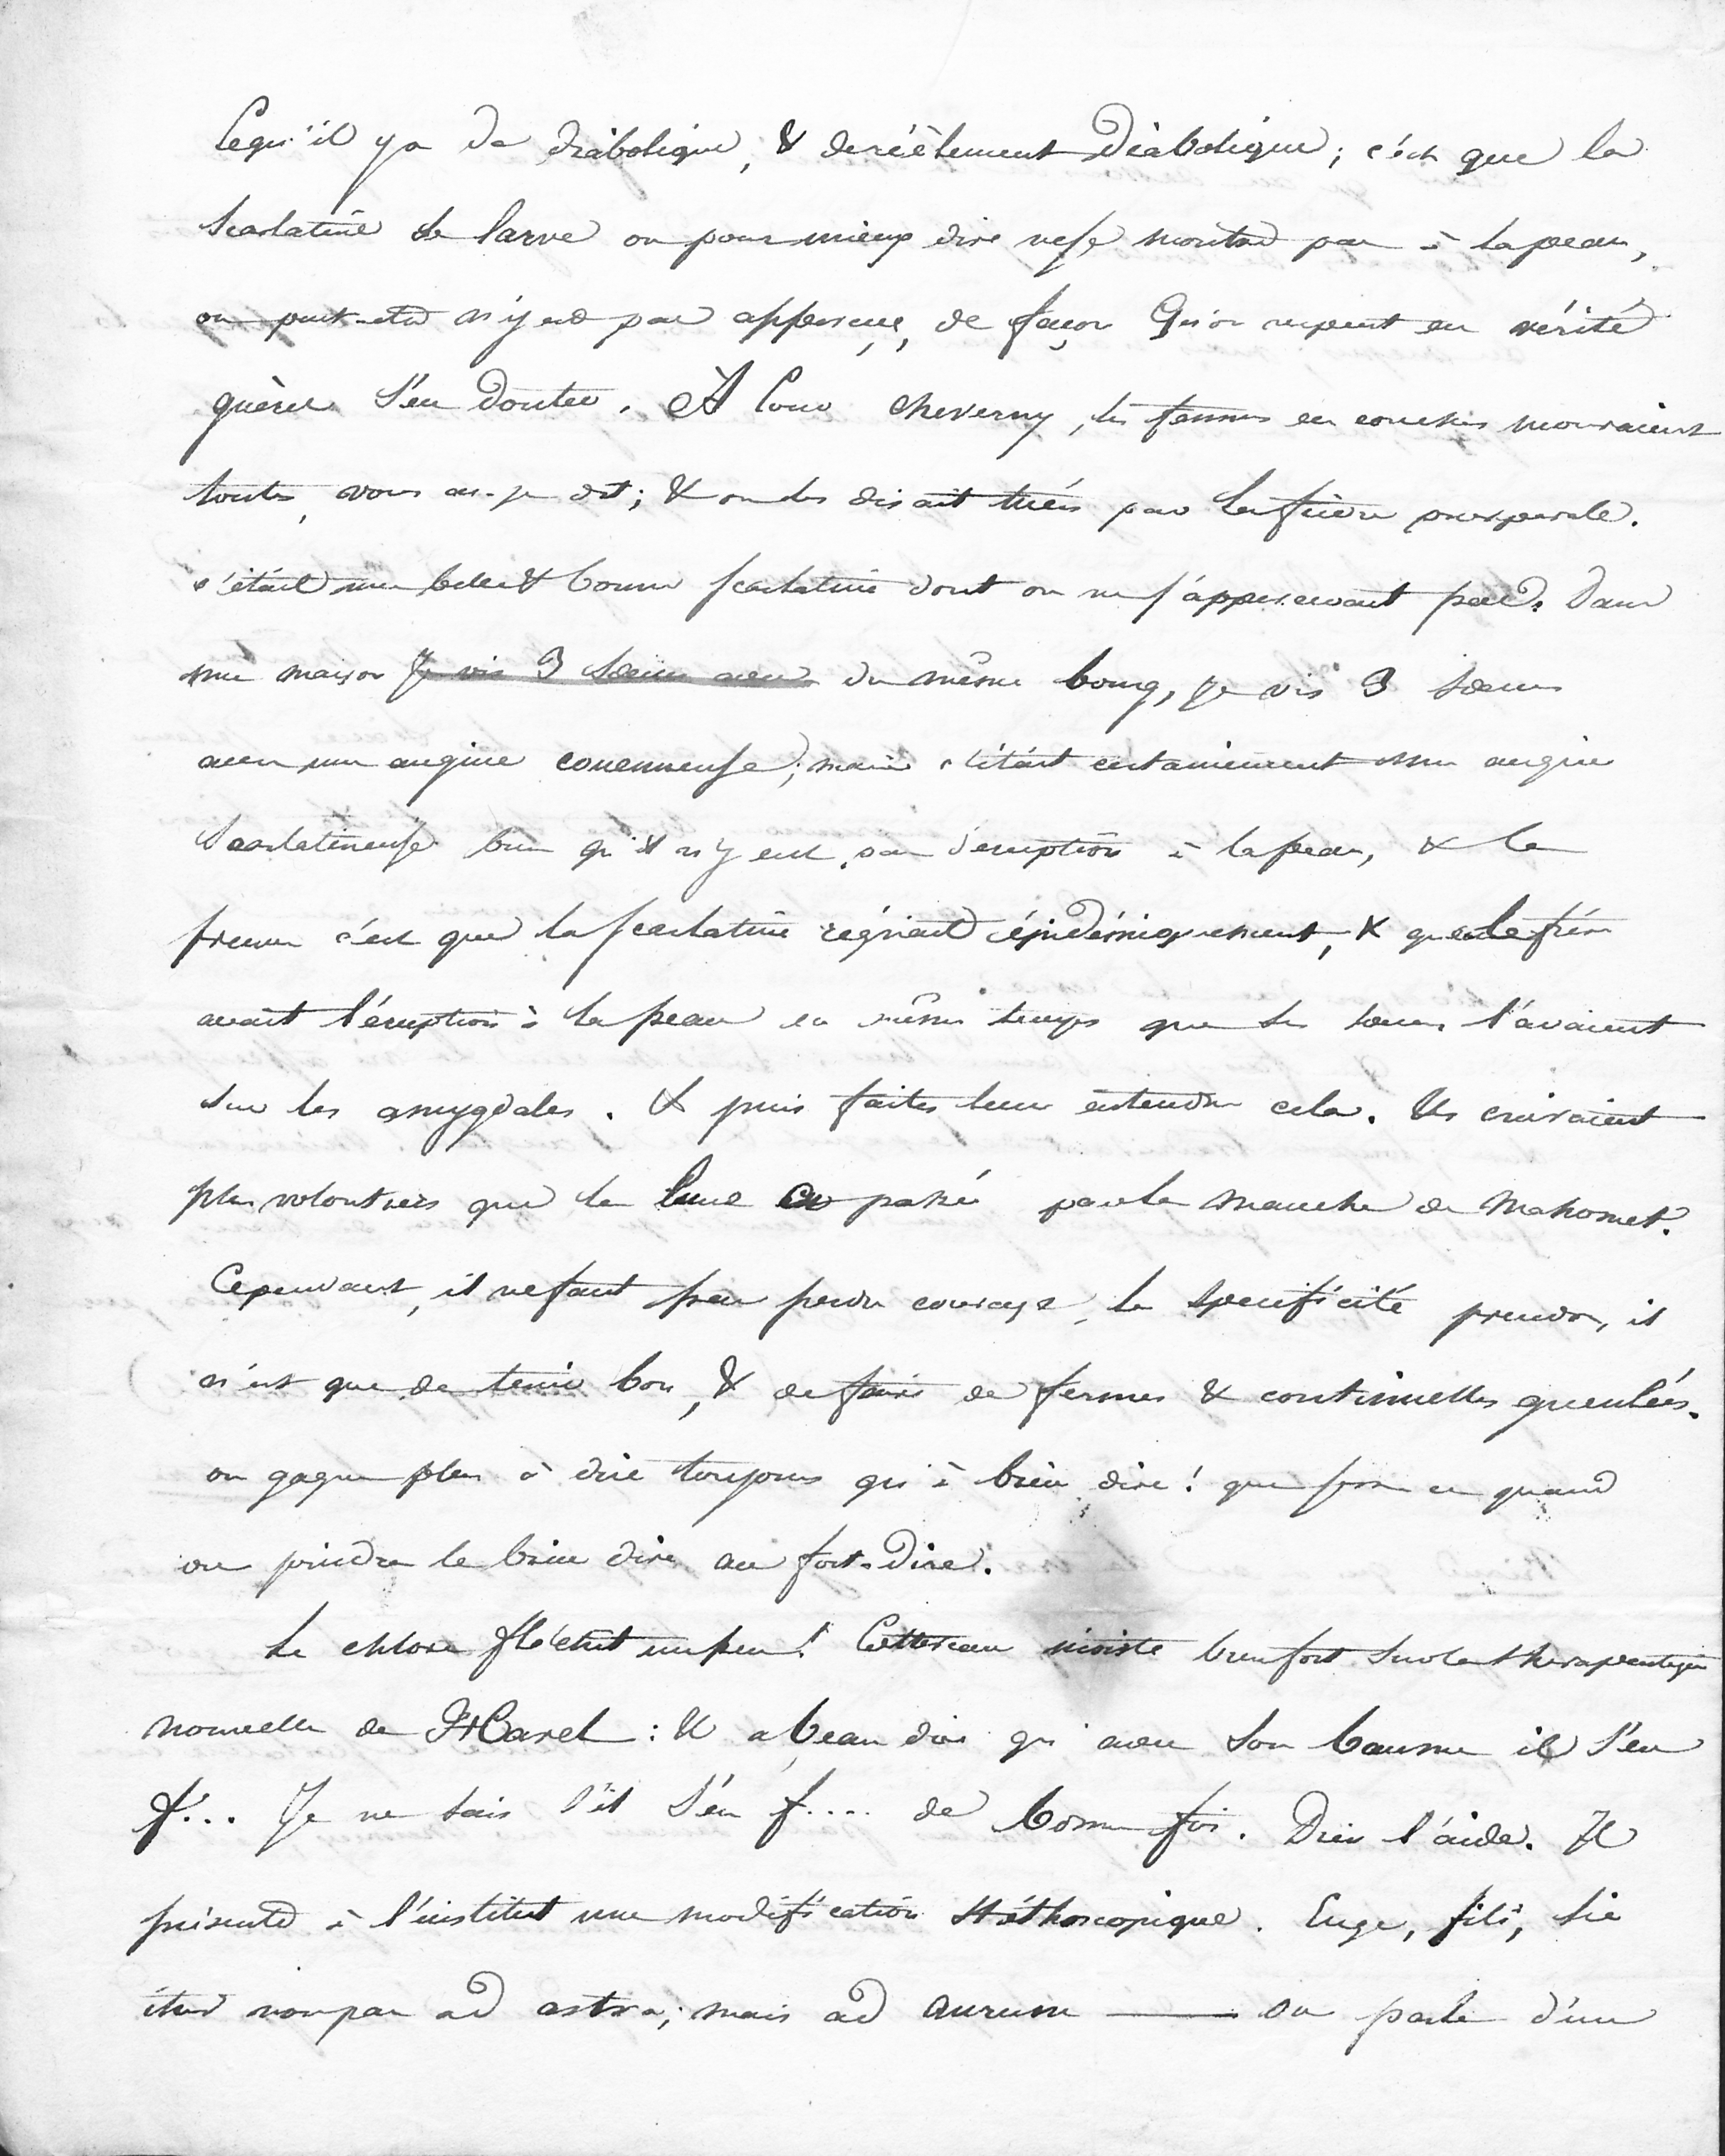 Cequ'il ya de diabolique, & deréellement diabolique; c'est que la
scarlatine se larve ou pour mieux dire nese montre pas à lapeau,
ou peut-etre n'y est pas apperçue, de façon qu'on nepeut en vérité
guères s'en douter. A Cour cheverny, les femmes en couches mouraient
toutes, vous ai-je dit; & on les disait tuées par lafièvre puerperale.
c'était une belle & bonne scarlatine dont on ne s'appercevait pas. Dans
une maison Je vis 3 soeurs avec du même bourg, je vis 3 soeurs
avec une angine couenneuse; mais c'était certainement une angine
scarlatineuse bien qu'il n'y eut pas d'éruption à lapeau, & la
preuve c'est que la scarlatine régnait épidémiquement, & que le frère
avait l'éruption à la peau en même temps que les soeurs l'avaient
sur les amygdales. & puis faites leur entendre cela. Ils croiraient
plus volontiers que la lune a passé par la manche de Mahomet.
Cependant, il nefaut pas perdre courage, la spécificité prendra, il
n'est que de tenir bon, & de faire de fermes & continuelles gueulées.
on gagne plus à dire toujours qu'à bien dire! que sera ce quand
on joindra le bien dire au fort-dire.
Le chlore fléchit unpeu! Cottereau insiste bienfort sur la thérapeutique
nouvelle de Harel: Il a beau dire qu'avec son baume il s'en
f... Je ne sais s'il s'en f.... de bonne foi. Dieu l'aide. Il
présente à l'institut une modification stéthoscopique. Euge, fili, sic
itur non pas ad astra; mais ad aurum —— On parle d'un